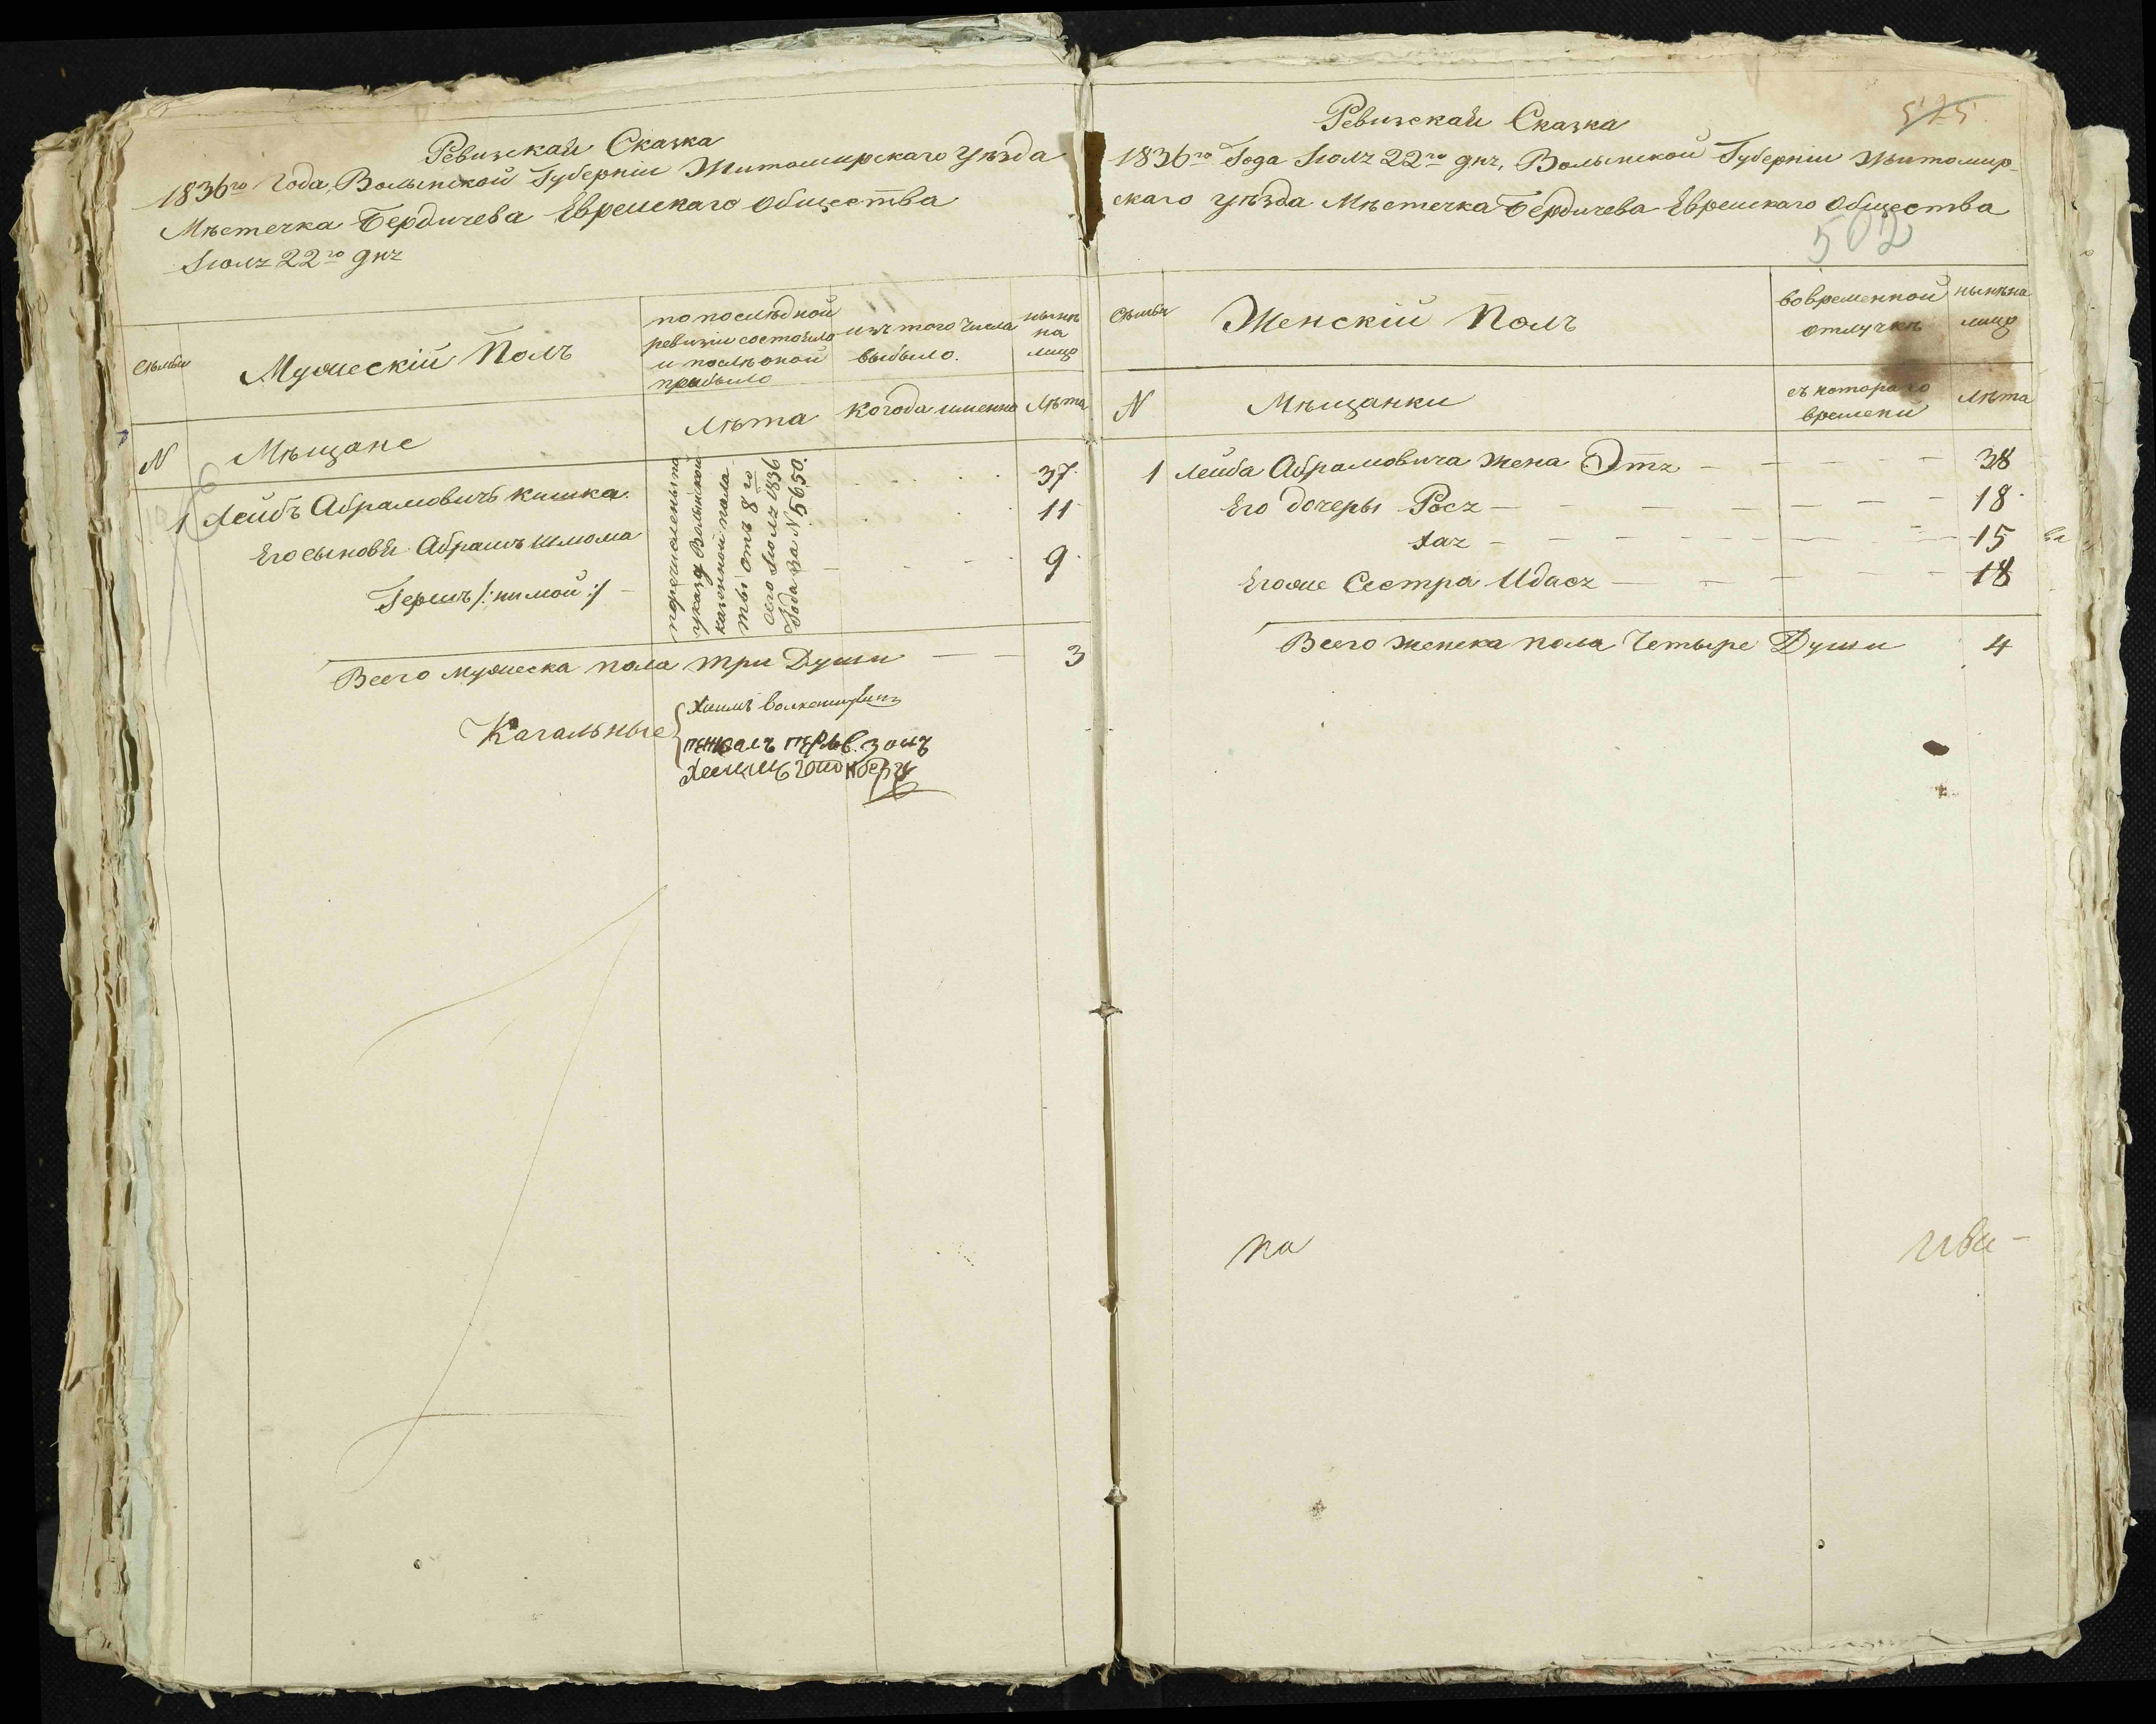 Ревизская Сказка
1836го Года, Волынской Губерніи Житомирскаго уѣзда
Мѣстечка Бердичева Еврейскаго Общества
Іюля 22го дня
Сѣмьи
Мужескій Полъ
по послѣдной ревизіи состояло и послѣ оной прибыло
изъ того числа выбыло.
нынѣ на лицо
N
Мѣщане
Лѣта
Когода именно
Лѣта
1 Лейбъ Абрамовичъ Кишка. 37.
Его сыновья Абрамъ Шлома 11
Гершъ /: нимой :/ 9.
перечислены по
указу Волынской
казенной пала
ты отъ 8го
сего Іюля 1836
Года за N 5650.
Всего мужеска пола три Души 3
Кагальные
Хаимъ
Ревизская Сказка
525
1836го Года Іюля 22го дня, Волынской Губерніи Житомир-
скаго уѣзда Мѣстечка Бердичева Еврейскаго Общества
502
Сѣмьи
Женскій Полъ
вовременной отлучкѣ
нынѣ на лицо
N
Мѣщанки
съ котораго времени
Лѣта
1 Лейба Абрамовича жена Этя 38
Его дочеры Рося 18.
Хая 15
Егоже Сестра Идася 18
Всего женска пола Четыре Души 4